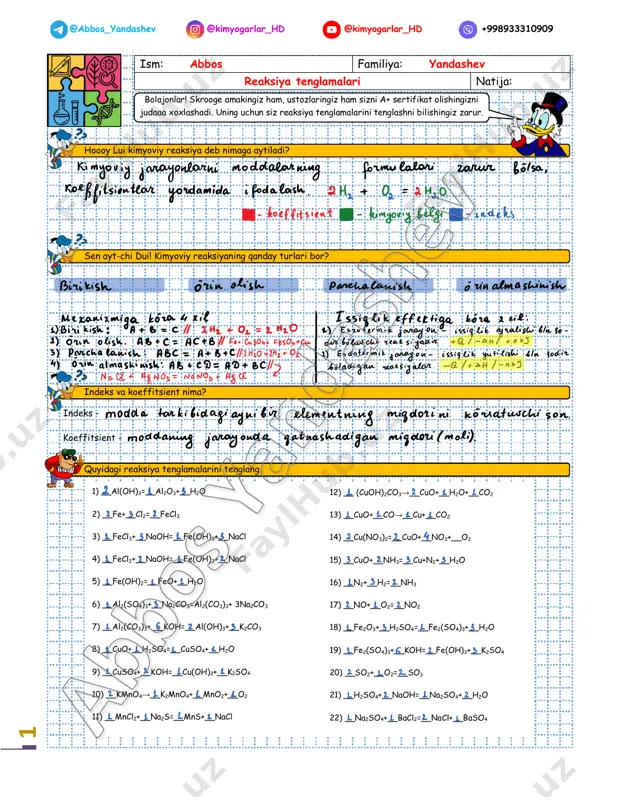 @Abbos_Yandashev @kimyogarlar_HD @kimyogarlar_HD +998933310909
Ism: Abbos Familiya: Yandashev
Reaksiya tenglamalari Natija:
Bolajonlar! Skrooge amakingiz ham, ustozlaringiz ham sizni A+ sertifikat olishingizni
judaaa xoxlashadi. Uning uchun siz reaksiya tenglamalarini tenglashni bilishingiz zarur.
Hoooy Lui kimyoviy reaksiya deb nimaga aytiladi?
Kimyoviy jarayonlarni moddalarning formulalari zarur bo'lsa,
Koeffitsientlar yordamida ifodalash 2H₂ + O₂ = 2H₂O
- koeffitsient - kimyoviy belgi - indeks
Sen ayt-chi Dui! Kimyoviy reaksiyaning qanday turlari bor?
Birikish o'rin olish Parchalanish o'rin almashinish
Mexanizmiga ko'ra 4 xil Issiqlik effektiga ko'ra 2 xil:
1) Birikish: A + B = C // 2H₂ + O₂ = 2H₂O
1) Ekzotermik jarayon - issiqlik ajralishi b/n so-
2) o'rin olish. AB + C = AC + B // Fe + CuSO₄ = FeSO₄ + Cu
dir bo'luvchi reaksiyalar +Q / -ΔH / +nkJ
3) Parchalanish: ABC = A + B + C // 2H₂O = 2H₂ + O₂
2) Endotermik jarayon - issiqlik yutilishi b/n sodir
4) o'rin almashinish: AB + CD = AD + BC //
bo'ladigan reaksiyalar. -Q / +ΔH / -nkJ
NaCl + AgNO₃ = NaNO₃ + AgCl
Indeks va koeffitsient nima?
Indeks - modda tarkibidagi ayni bir elementning miqdorini ko'rsatuvchi son.
Koeffitsient - moddaning jarayonda qatnashadigan miqdori (moli).
Quyidagi reaksiya tenglamalarini tenglang.
1) 2 Al(OH)₃= 1 Al₂O₃+ 3 H₂O
2) 2 Fe+ 3 Cl₂= 2 FeCl₃
3) 1 FeCl₃+ 3 NaOH= 1 Fe(OH)₃+ 3 NaCl
4) 1 FeCl₂+ 2 NaOH= 1 Fe(OH)₂+ 2 NaCl
5) 1 Fe(OH)₂= 1 FeO+ 1 H₂O
6) 1 Al₂(SO₄)₃+ 3 Na₂CO₃=Al₂(CO₃)₃+ 3Na₂CO₃
7) 1 Al₂(CO₃)₃+ 6 KOH= 2 Al(OH)₃+ 3 K₂CO₃
8) 1 CuO+ 1 H₂SO₄= 1 CuSO₄+ 1 H₂O
9) 1 CuSO₄+ 2 KOH= 1 Cu(OH)₂+ 1 K₂SO₄
10) 2 KMnO₄→ 1 K₂MnO₄+ 1 MnO₂+ 1 O₂
11) 1 MnCl₂+ 1 Na₂S= 1 MnS+ 1 NaCl
12) 1 (CuOH)₂CO₃→ 2 CuO+ 1 H₂O+ 1 CO₂
13) 1 CuO+ 1 CO→ 1 Cu+ 1 CO₂
14) 2 Cu(NO₃)₂= 2 CuO+ 4 NO₂+__O₂
15) 3 CuO+ 2 NH₃= 3 Cu+N₂+ 3 H₂O
16) 1 N₂+ 3 H₂= 2 NH₃
17) 2 NO+ 1 O₂= 2 NO₂
18) 1 Fe₂O₃+ 3 H₂SO₄= 1 Fe₂(SO₄)₃+ 3 H₂O
19) 1 Fe₂(SO₄)₃+ 6 KOH= 2 Fe(OH)₃+ 3 K₂SO₄
20) 2 SO₂+ 1 O₂= 2 SO₃
21) 1 H₂SO₄+ 2 NaOH= 1 Na₂SO₄+ 2 H₂O
22) 1 Na₂SO₄+ 1 BaCl₂= 2 NaCl+ 1 BaSO₄
Abbos Yandashev
FaylHub.uz
1